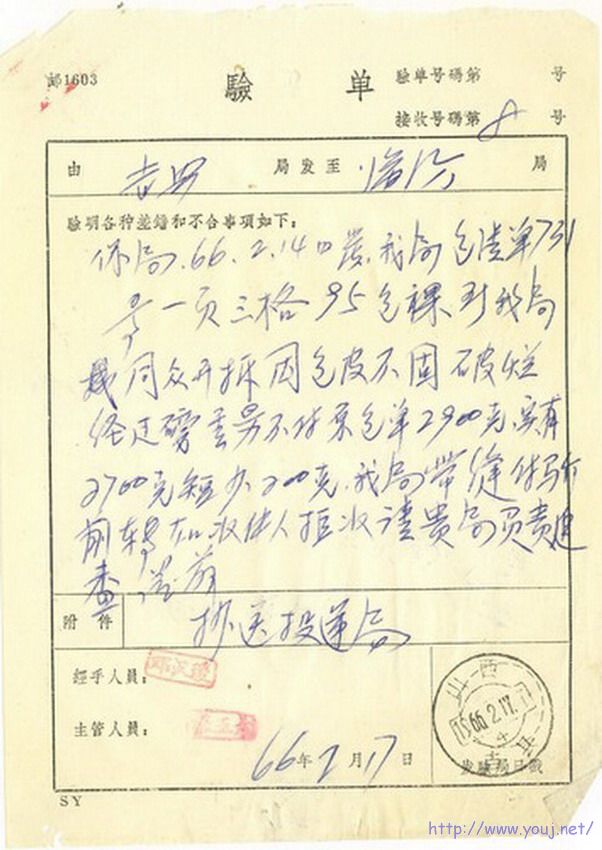 邮1603 驗 单 驗单号碼第 号
接收号碼第 8 号
由 吉县 局发至 临汾 局
驗明各种差錯和不合事項如下:
你局.66.2.14日发.我局包清单731
号一页三格95包裸.到我局
同众开拆因包皮不固破烂
经过磅重量不符原包单2900克.实有
2700克短少200克.我局带缝
前转 如收件人拒收請貴局负责
查
附件 抄送投递局
經手人員:
主管人員:
66年2月17日
山西
15 66.2.17.
4
吉县
发驗局日戳
SY
http://www.youj.net/